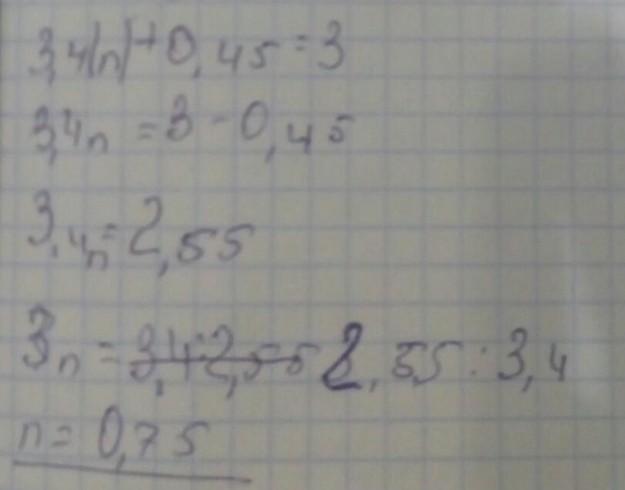 3,4|n|+0,45=3
3,4n=3-0,45
3,4n=2,55
3n=3,4:2,55 2,55:3,4
n=0,75